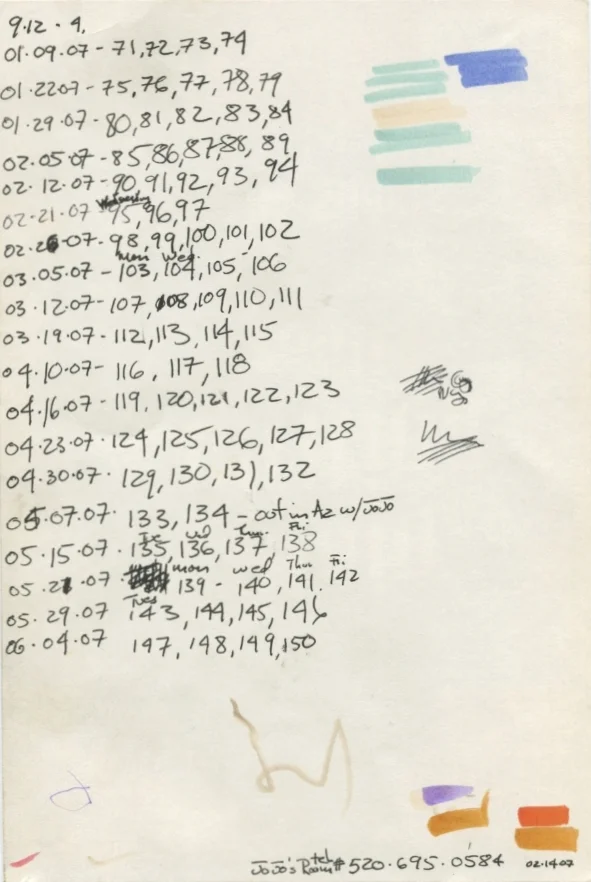 9.12 - 4.
01.09.07 - 71,72,73,74
01.22.07 - 75,76,77,78,79
01.29.07 - 80,81,82,83,84
02.05.07 - 85,86,87,88,89
02.12.07 - 90,91,92,93,94
Wednesday
02.21.07 95,96,97
02.26.07 - 98,99,100,101,102
mon Wed.
03.05.07 - 103,104,105,106
03.12.07 - 107,108,109,110,111
03.19.07 - 112,113,114,115
04.10.07 - 116, 117, 118
04.16.07 - 119, 120, 121, 122, 123
04.23.07 - 124,125,126,127,128
04.30.07 - 129,130,131,132
05.07.07 - 133,134 - out in Az w/ JoJo
Tue Wed Thur. Fri
05.15.07 - 135,136,137,138
mon wed Thur Fri
05.21.07 - 139 - 140,141,142
Tues
05.29.07 143,144,145,146
06.04.07 147,148,149,150
JoJo's Room tel# 520.695.0584 02.14.07